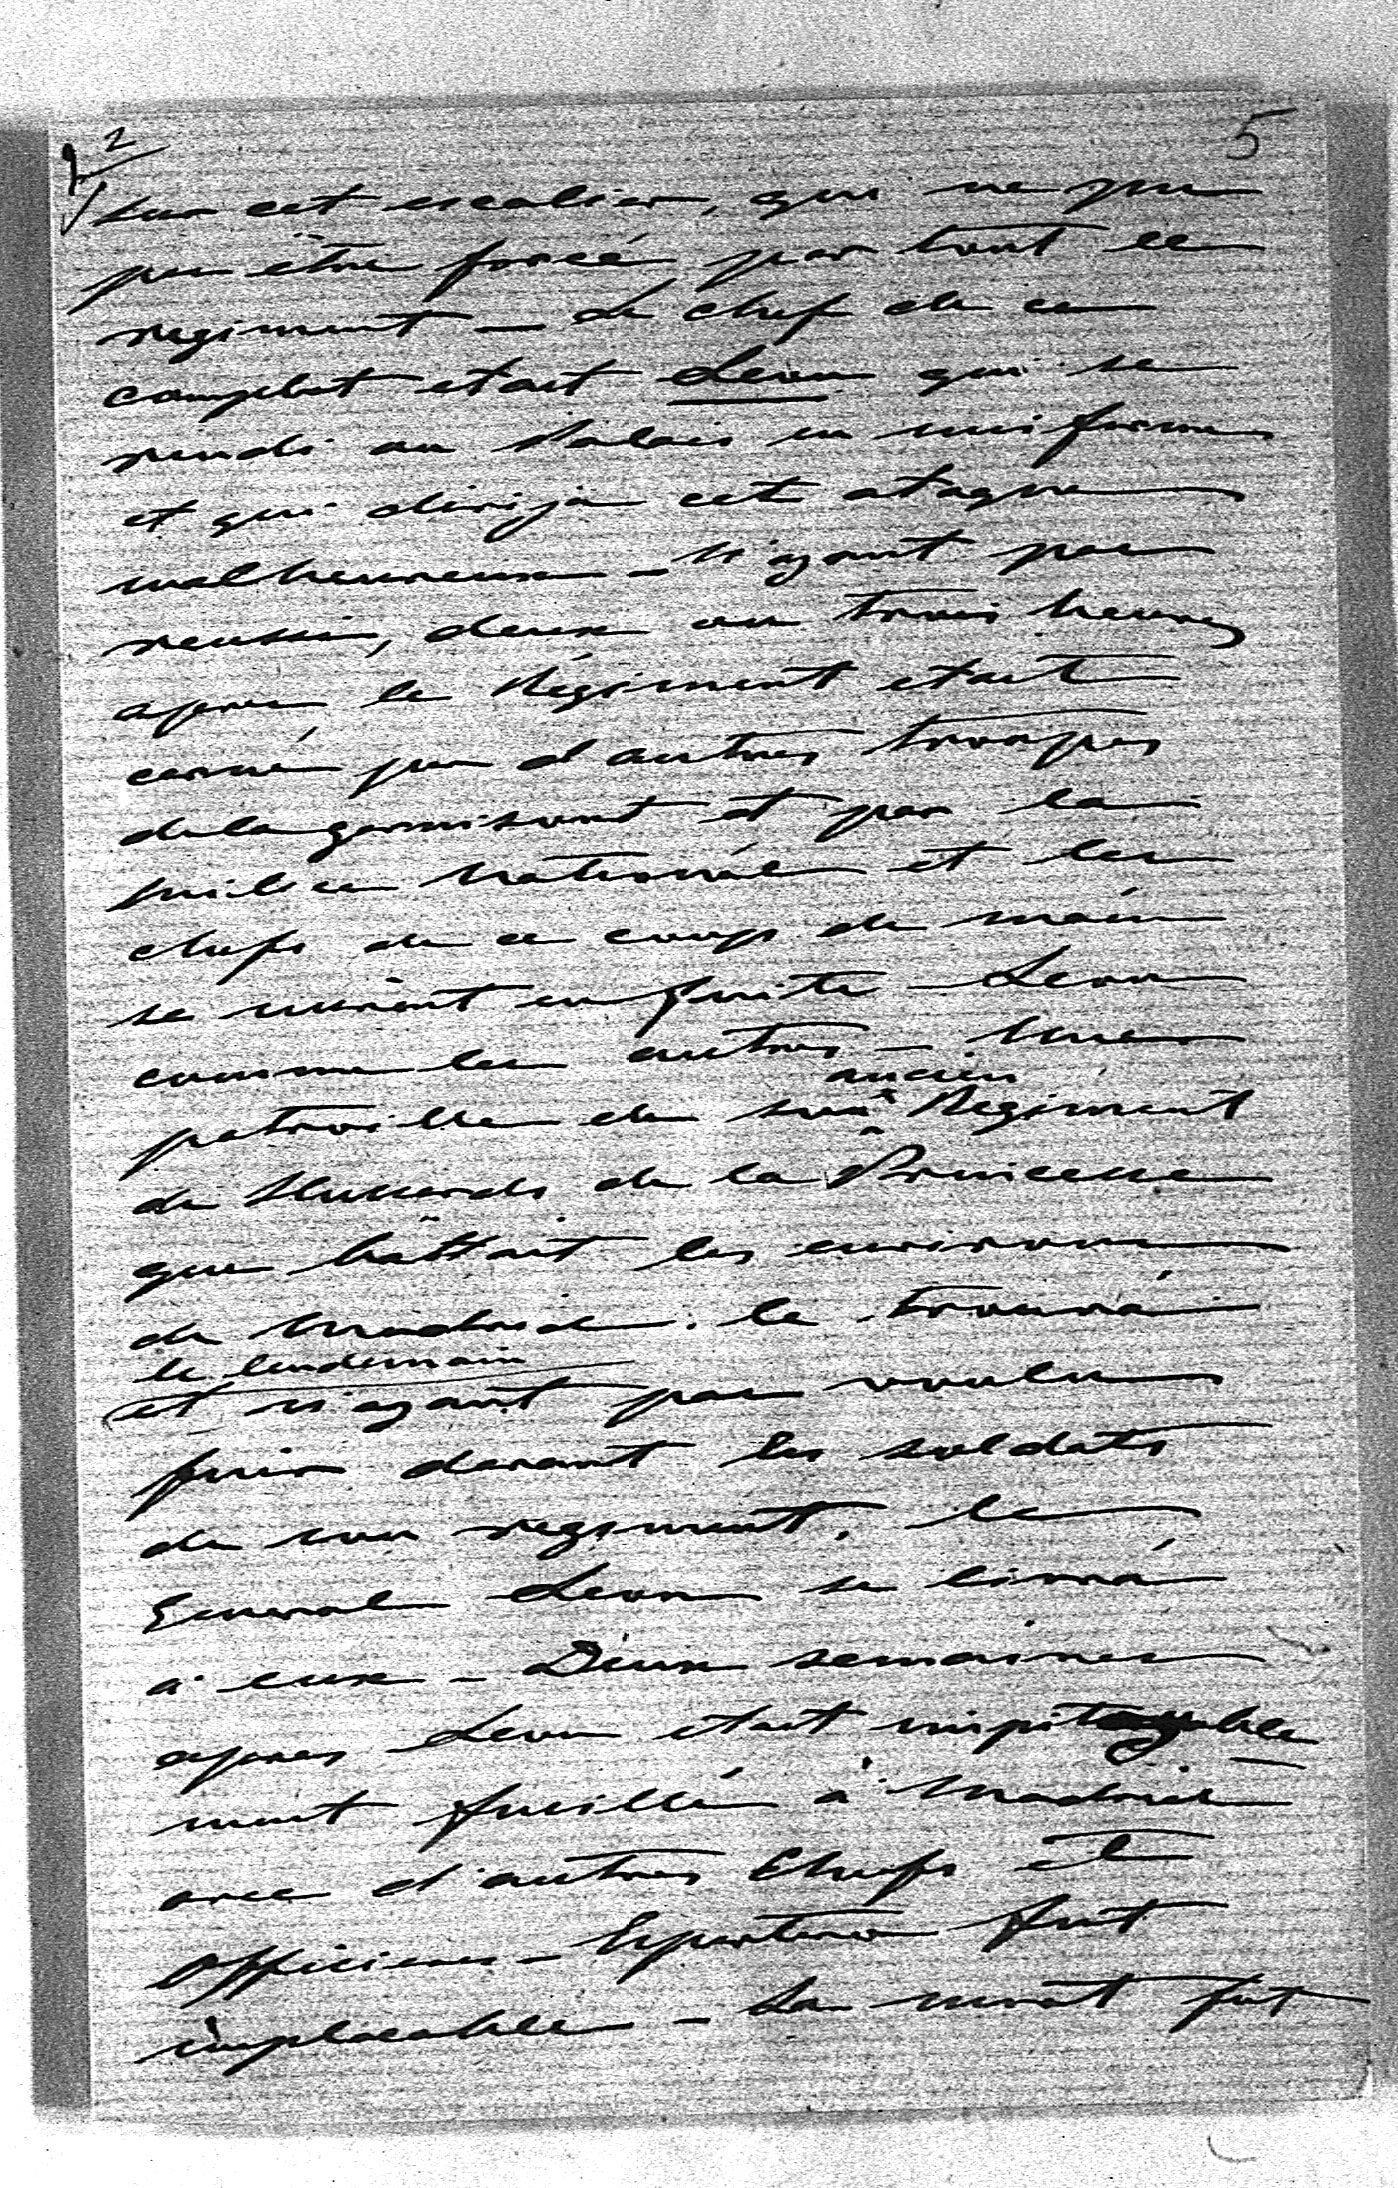 2 5
sur cet escalier, qui ne pu
pu être forcé par tout le
regiment — Le chef de ce
complot etait Leon qui se
rendi au Palais en uniforme
et qui dirija cet ataque
malheureuse — N'ayant pas
reussi, deux ou trois heures
apres le Régiment etait
cerné par d'autres troupes
dela garnisont et par la
milice National et les
chefs de ce coup de main
se mirent en fuite — Leon
comme les autres — Une
patrouille de son ancien Regiment
de Hussards de la Princesse
que battait les environs
de Madrid le trouvá
le lendemain
et n'ayant pas voulu
fuir devant les soldats
de son regiment, le
General Leon se livrá
a eux — Deux semaines
apres Leon etait impitoyable
ment fusillé à Madrid
avec d'autres Chefs et
Officiers — Espartero fut
implacable — La mort fut